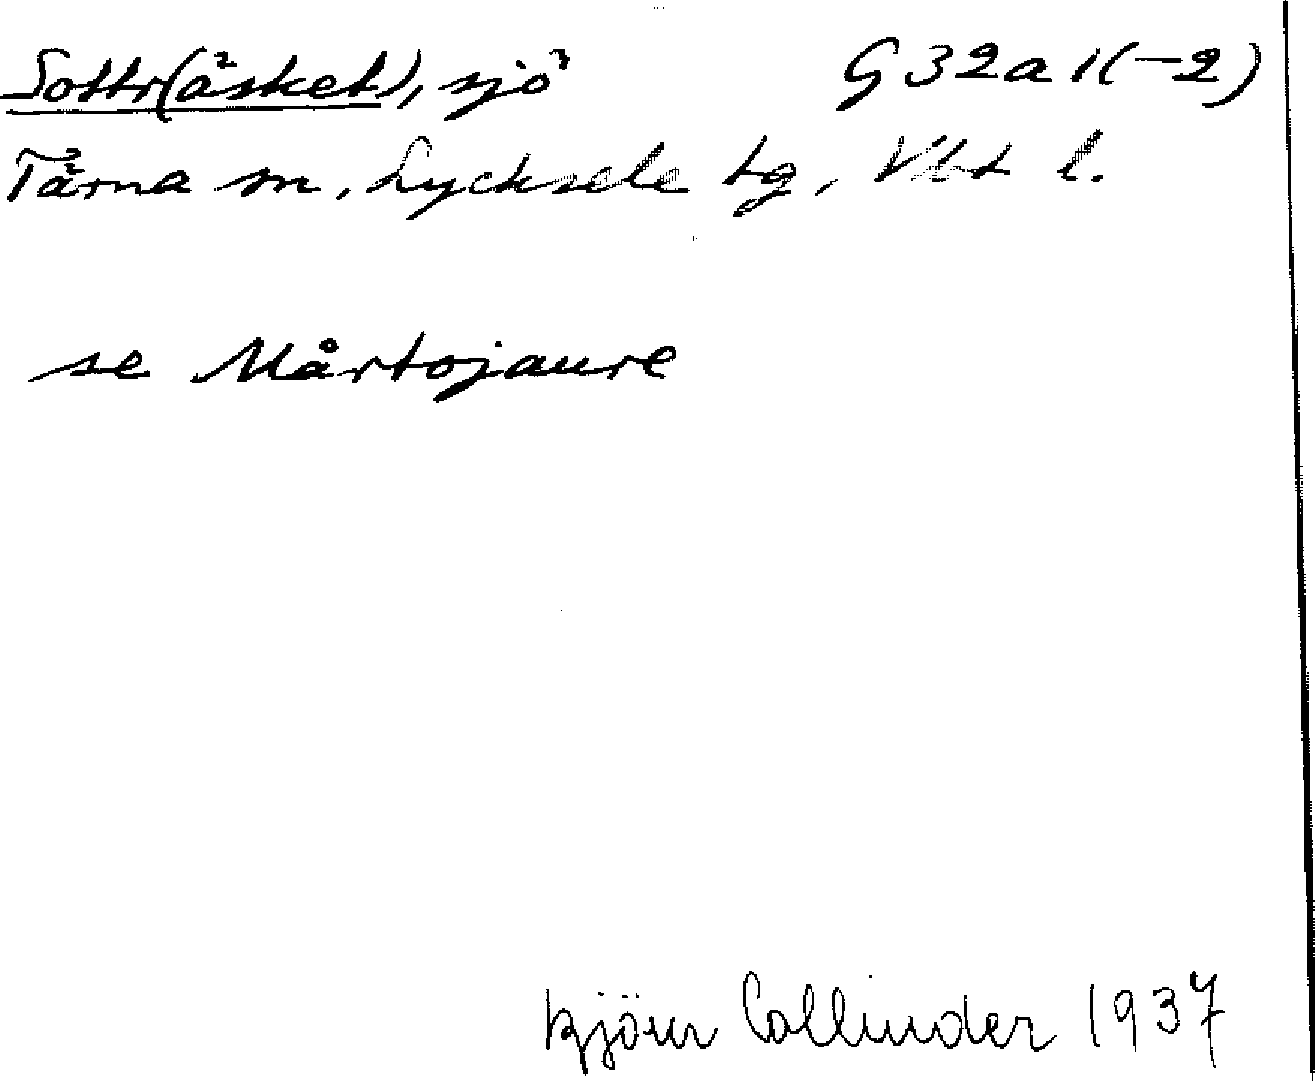 Sottr(äsket), sjö G32a1(-2)
Tärna sn, Lycksele tg, Vbt l.
se Mårtojaure
Björn Collinder 1937